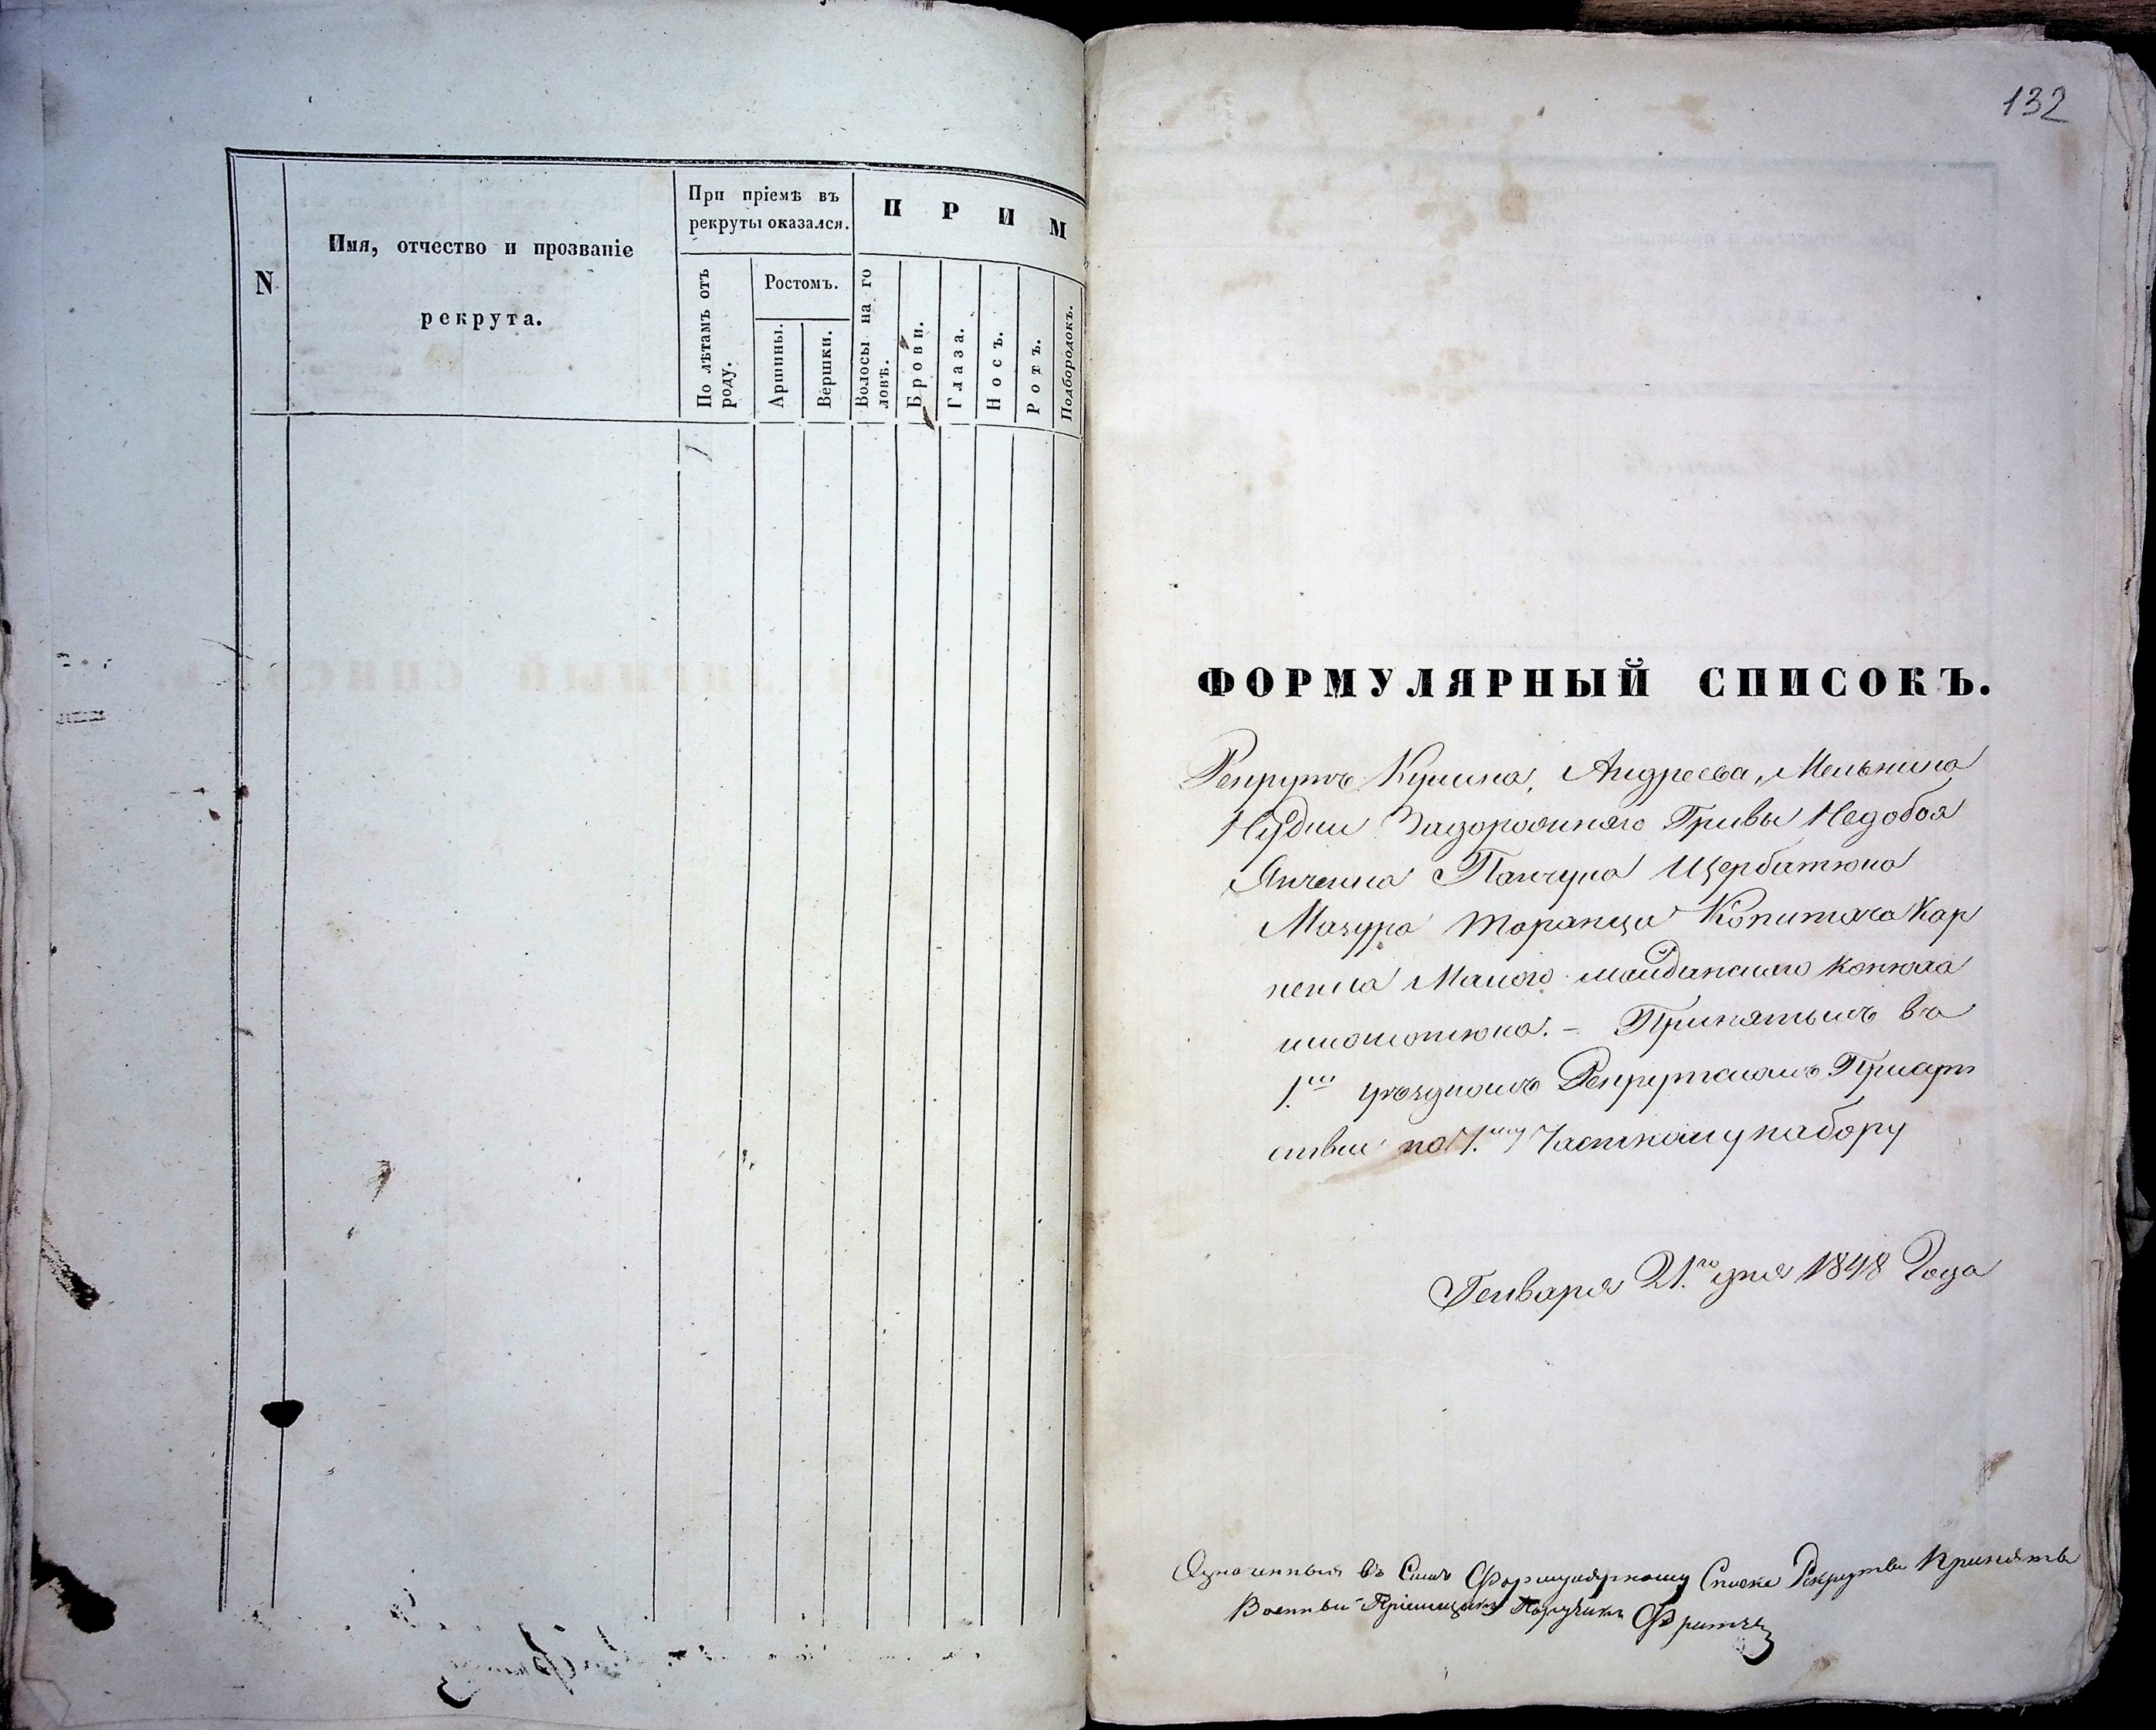 N
Имя, отчество и прозваніе
рекрута.
При пріемѣ въ
рекруты оказался.
По лѣтамъ отъ
роду.
Ростомъ.
Аршины.
Вершки.
П Р И М
Волосы на го
ловѣ.
Брови.
Глаза.
Носъ.
Ротъ.
Подбородокъ.
132
ФОРМУЛЯРНЫЙ СПИСОКЪ.
Рекрутъ Андреева, Мельника
Задорожнего Гривы Недобоя
Янченка Панчука Щербатюка
Мазура Таранца Копитача Кар
пенка Малого Майданского
Принятымъ въ
1.мъ уѣздномъ Рекрутскомъ Присут
ствіи по 7.му Частному набору
Генваря 21.го дня 1848 Года
Означенныя въ Семъ Формулярному Списке Рекрутъ Принятъ
Военный Пріемщикъ Поручикъ